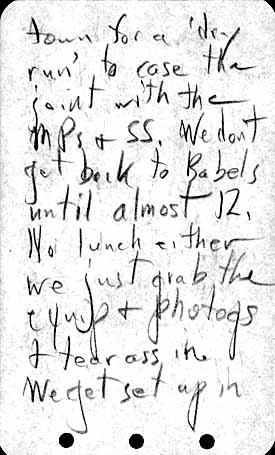 town for a 'dry
run' to case the
joint with the
MPs + SS. We don't
get back to Babels
until almost 12.
No lunch either
we just grab the
equip + photogs
+ tear ass in.
We get set up in